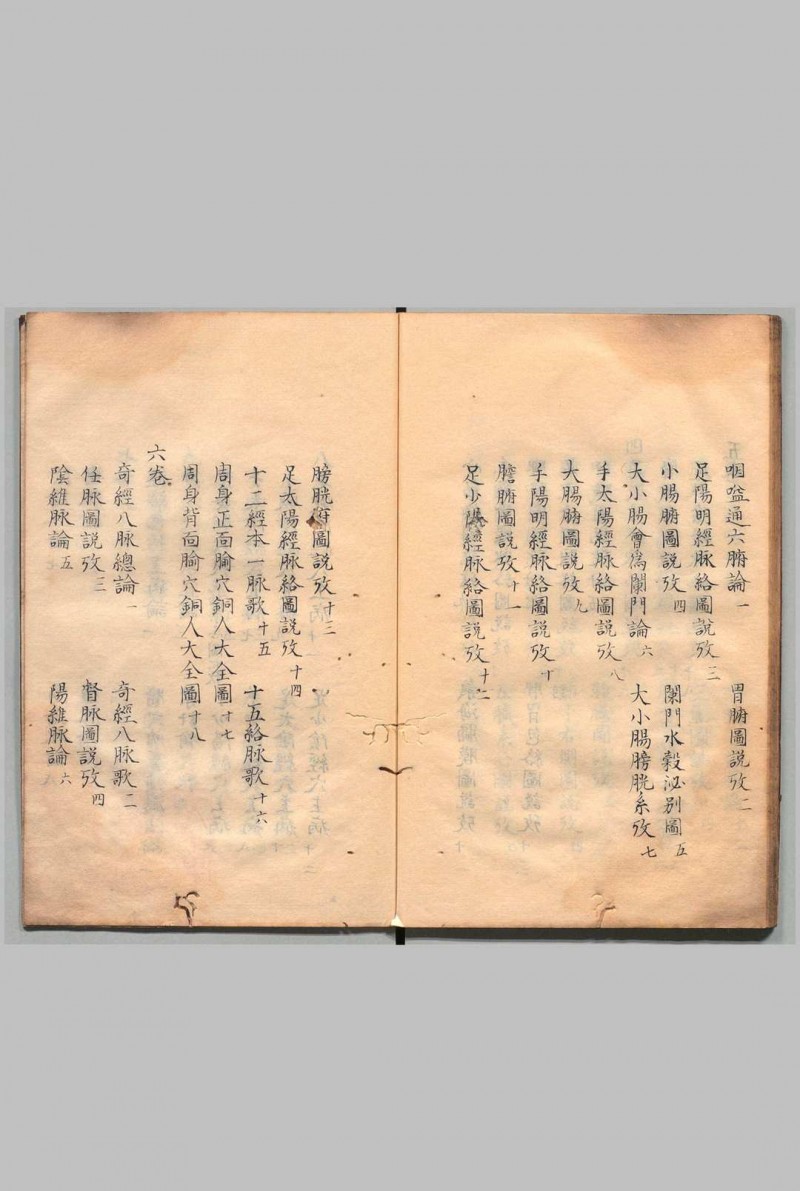 咽嗌通六腑論一 胃腑圖説攷二
足陽明經脉絡圖説攷三
小腸腑圖説攷四 闌門水穀泌别圖五
大小腸會為闌門論六 大小腸膀胱系攷七
手太陽經脉絡圖説攷八
大腸腑圖説攷九
手陽明經脉絡圖説攷十
膽腑圖説攷十一
足少陽經脉絡圖説攷十二
膀胱腑圖説攷十三
足太陽經脉絡圖説攷十四
十二經本一脉歌十五 十五絡脉歌十六
周身正面腧穴銅人大全圖十七
周身背面腧穴銅人大全圖十八
六卷
奇經八脉總論一 奇經八脉歌二
任脉圖説攷三 督脉圖説攷四
陰維脉論五 陽維脉論六